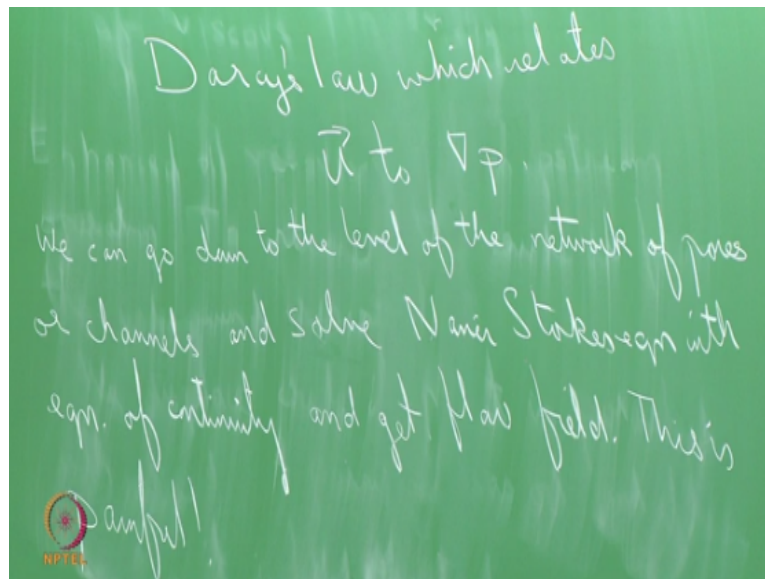 Darcy's law which relates
u⃗ to ∇p.
We can go down to the level of the network of pores
or channels and solve Navier Stokes eqn with
eqn. of continuity and get flow field. This is
Painful!
NPTEL